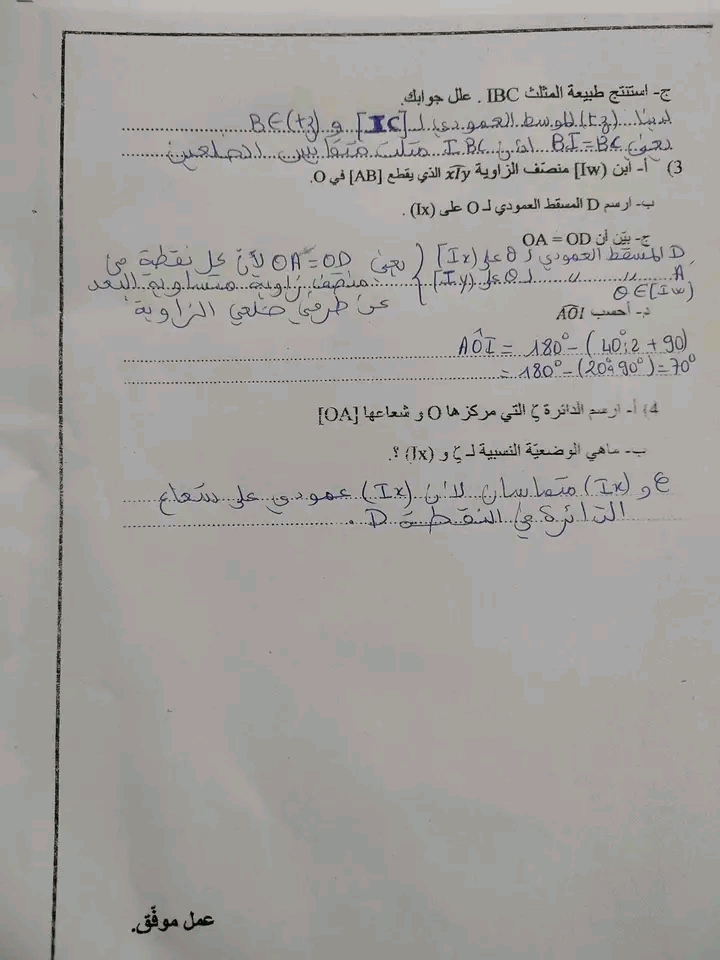 ج- استنتج طبيعة المثلث IBC . علل جوابك.
لدينا (tz) الموسط العمودي لـ [IC] و B∈(tz)
يعني BI=BC اذن IBC مثلث متقايس الضلعين
3) أ- أبن [Iw) منصّف الزاوية xIy الذي يقطع [AB] في O.
ب- ارسم D المسقط العمودي لـ O على (Ix) .
ج- بيّن أن OA = OD
D المسقط العمودي لـ O على [Ix) } يعني OA=OD لأنّ كل نقطة من
A " " لـ O على [Iy) } منصف زاوية متساوية البعد
O∈[Iw) عن طرفي ضلعي الزاوية
د- أحسب AÔI
AÔI = 180° - (40°:2 + 90)
= 180° - (20°+90°) = 70°
4) أ- ارسم الدائرة ζ التي مركزها O و شعاعها [OA]
ب- ماهي الوضعيّة النسبية لـ ζ و (Ix) ؟.
ζ و (Ix) متماسان لأن (Ix) عمودي على شعاع
الدائرة في النقطة D .
عمل موفّق.